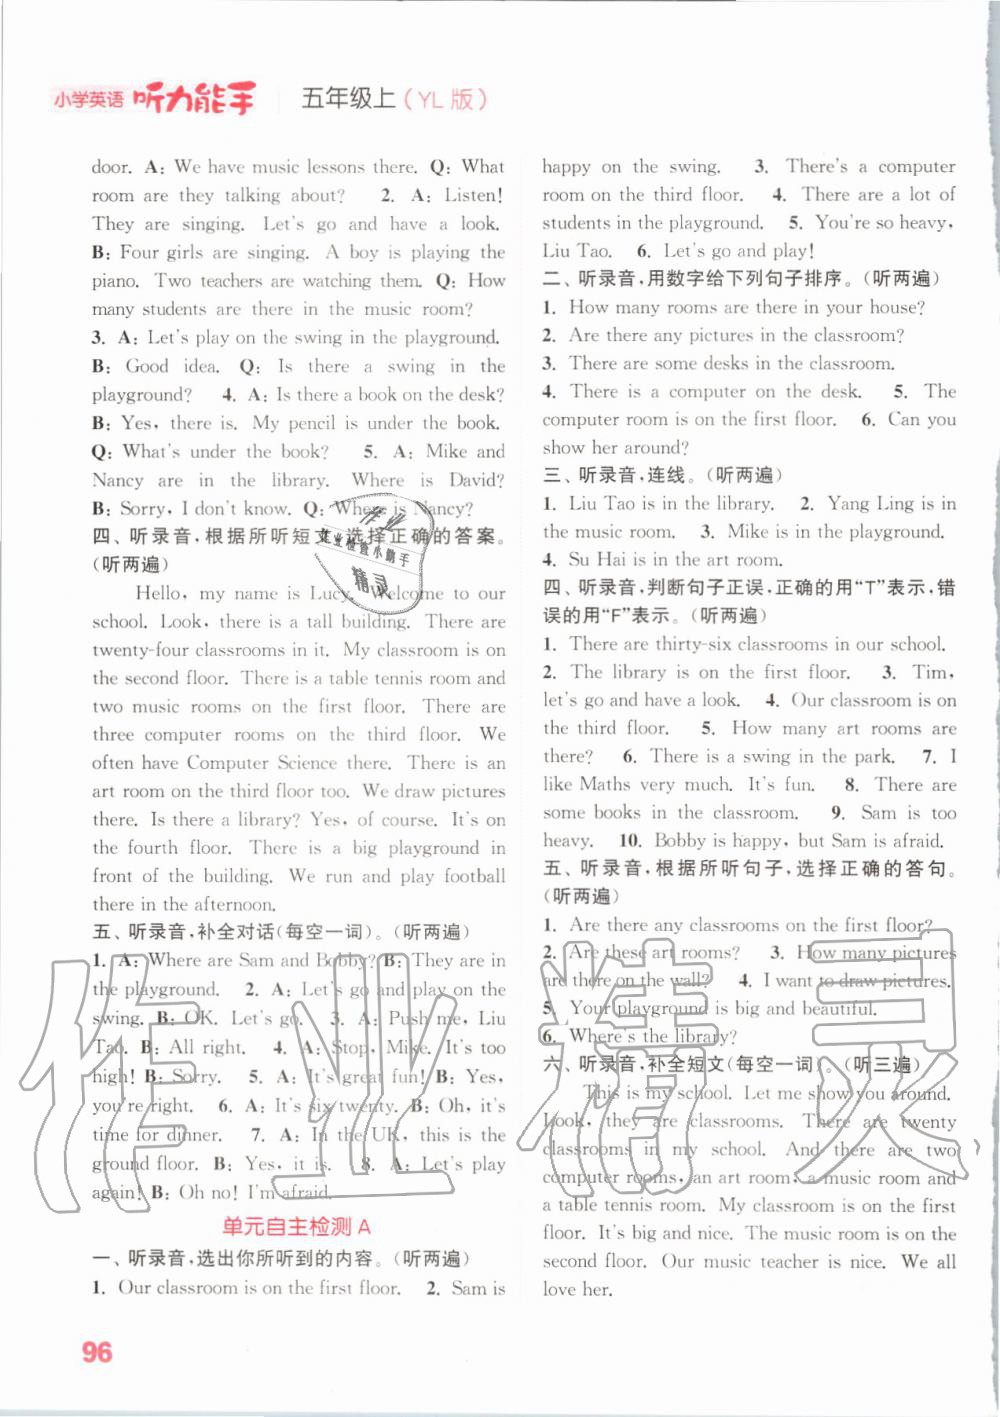 小学英语 听力能手 五年级上(YL版)
door. A: We have music lessons there. Q: What
room are they talking about? 2. A: Listen!
They are singing. Let's go and have a look.
B: Four girls are singing. A boy is playing the
piano. Two teachers are watching them. Q: How
many students are there in the music room?
3. A: Let's play on the swing in the playground.
B: Good idea. Q: Is there a swing in the
playground? 4. A: Is there a book on the desk?
B: Yes, there is. My pencil is under the book.
Q: What's under the book? 5. A: Mike and
Nancy are in the library. Where is David?
B: Sorry, I don't know. Q: Where is Nancy?
四、听录音,根据所听短文,选择正确的答案。
(听两遍)
Hello, my name is Lucy. Welcome to our
school. Look, there is a tall building. There are
twenty-four classrooms in it. My classroom is on
the second floor. There is a table tennis room and
two music rooms on the first floor. There are
three computer rooms on the third floor. We
often have Computer Science there. There is an
art room on the third floor too. We draw pictures
there. Is there a library? Yes, of course. It's on
the fourth floor. There is a big playground in
front of the building. We run and play football
there in the afternoon.
五、听录音,补全对话(每空一词)。(听两遍)
1. A: Where are Sam and Bobby? B: They are in
the playground. 2. A: Let's go and play on the
swing. B: OK. Let's go. 3. A: Push me, Liu
Tao. B: All right. 4. A: Stop, Mike. It's too
high! B: Sorry. 5. A: It's great fun! B: Yes,
you're right. 6. A: It's six twenty. B: Oh, it's
time for dinner. 7. A: In the UK, this is the
ground floor. B: Yes, it is. 8. A: Let's play
again! B: Oh no! I'm afraid.
单元自主检测 A
一、听录音,选出你所听到的内容。(听两遍)
1. Our classroom is on the first floor. 2. Sam is
happy on the swing. 3. There's a computer
room on the third floor. 4. There are a lot of
students in the playground. 5. You're so heavy,
Liu Tao. 6. Let's go and play!
二、听录音,用数字给下列句子排序。(听两遍)
1. How many rooms are there in your house?
2. Are there any pictures in the classroom?
3. There are some desks in the classroom.
4. There is a computer on the desk. 5. The
computer room is on the first floor. 6. Can you
show her around?
三、听录音,连线。(听两遍)
1. Liu Tao is in the library. 2. Yang Ling is in
the music room. 3. Mike is in the playground.
4. Su Hai is in the art room.
四、听录音,判断句子正误,正确的用“T”表示,错
误的用“F”表示。(听两遍)
1. There are thirty-six classrooms in our school.
2. The library is on the first floor. 3. Tim,
let's go and have a look. 4. Our classroom is on
the third floor. 5. How many art rooms are
there? 6. There is a swing in the park. 7. I
like Maths very much. It's fun. 8. There are
some books in the classroom. 9. Sam is too
heavy. 10. Bobby is happy, but Sam is afraid.
五、听录音,根据所听句子,选择正确的答句。
(听两遍)
1. Are there any classrooms on the first floor?
2. Are these art rooms? 3. How many pictures
are there on the wall? 4. I want to draw pictures.
5. Your playground is big and beautiful.
6. Where's the library?
六、听录音,补全短文(每空一词)。(听三遍)
This is my school. Let me show you around.
Look, they are classrooms. There are twenty
classrooms in my school. And there are two
computer rooms, an art room, a music room and
a table tennis room. My classroom is on the first
floor. It's big and nice. The music room is on the
second floor. Our music teacher is nice. We all
love her.
96
作业
作业检查小能手
精灵
作业精灵